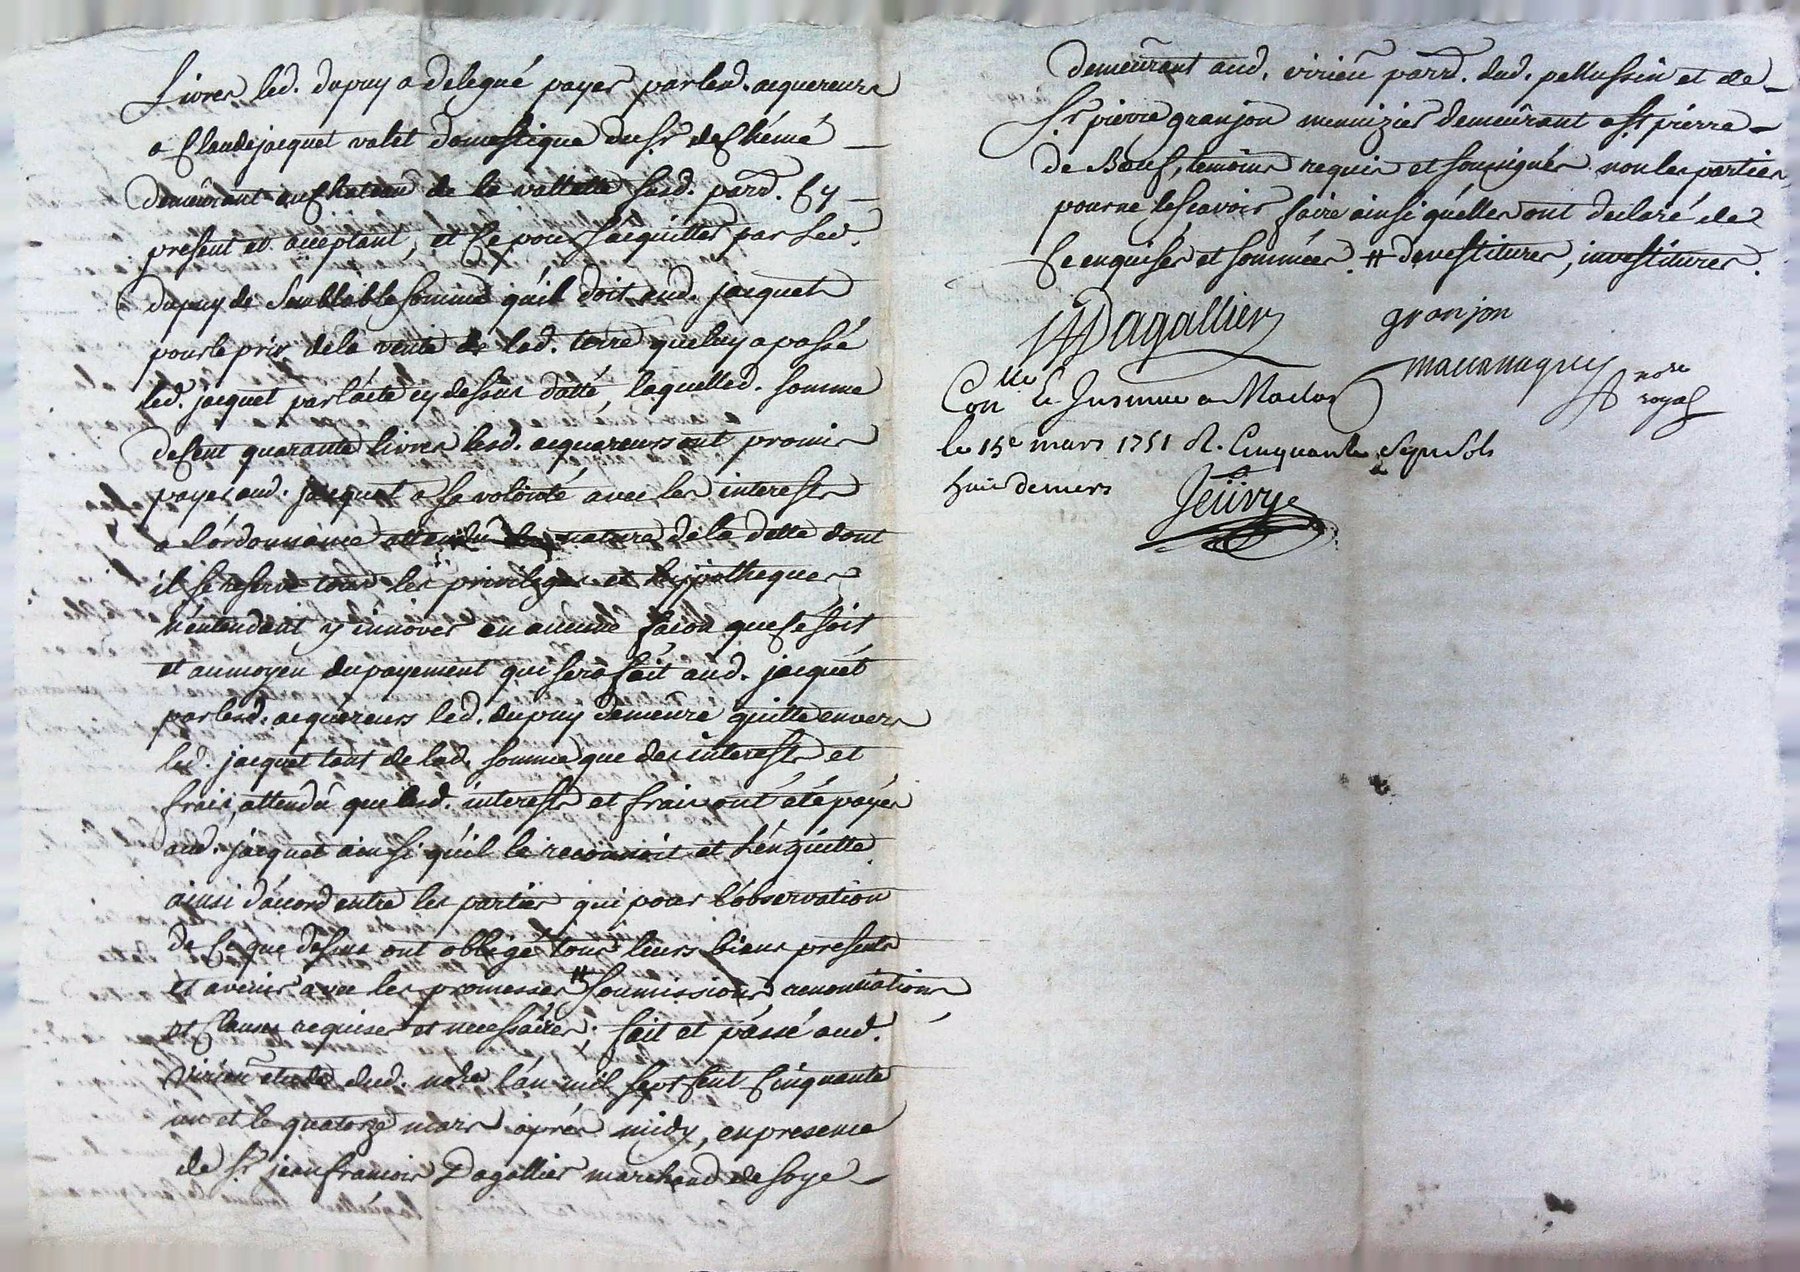 Livres led. dupuy a délégué payer par lesd. acquereurs
a Claude jacquet valet domestique du Sr. de Chémé
demeurant au Chateau de la vallette susd. parr. Cy
present et acceptant, et Ce pour S'acquitter par Led.
dupuy de Semblable somme qu'il doit aud. jacquet
pour le prix de la vente de lad. terre que luy a passé
led. jacquet par l'acte cy dessus datté, laquelled. somme
de Cent quarante livres lesd. acquereurs ont promis
payer aud. jacquet a sa volonté avec les interests
a l'ordonnance attendu la nature de la dette dont
il se reserve tous les privileges et hypotheques
n'entendant y innover en aucune facon que Ce soit
et au moyen du payement qui sera fait aud. jacquet
par lesd. acquereurs led. dupuy demeure quitte envers
led. jacquet tant de lad. somme que des interests et
frais, attendu que lesd. interests et frais ont été payés
aud. jacquet ainsi qu'il le reconnoit et L'en quitte.
ainsi d'acord entre les parties qui pour l'observation
de Ce que dessus ont obligé tous leurs biens presents
et avenir avec les promesses # soumissions renonciations
et Clauses requises et necessaires; fait et passé aud.
virieu etude dud. nore l'an mil sept Cent Cinquante
un et le quatorze mars après midy, en presence
de Sr. jean francois Dagallier marchand de soye
demeurant aud. virieu parr. dud. pellussin et de
Sr pierre granjon menuizier demeurant a St pierre
de Boeuf, temoins requis et soussignés non les parties
pour ne le scavoir faire ainsi quelles ont declaré de
Ce enquises et sommées. # devestitures, investitures.
Dagallier granjon
nore
royal
Con.lle et Insinué a Maclas
le 15e mars 1751 R. Cinquante Sept Sols
huit deniers